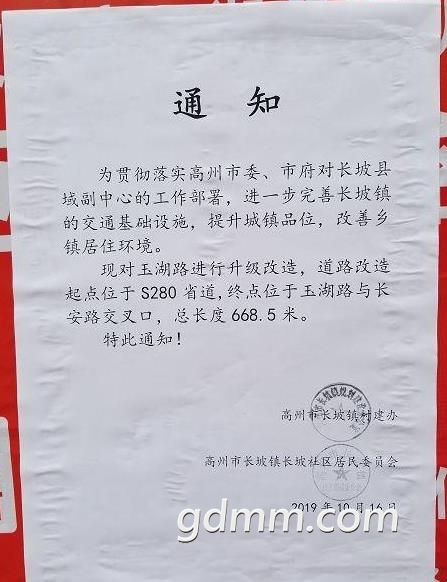 通 知
为贯彻落实高州市委、市府对长坡县
域副中心的工作部署，进一步完善长坡镇
的交通基础设施，提升城镇品位，改善乡
镇居住环境。
现对玉湖路进行升级改造，道路改造
起点位于 S280 省道，终点位于玉湖路与长
安路交叉口，总长度 668.5 米。
特此通知！
高州市长坡镇村建办
高州市长坡镇长坡社区居民委员会
2019 年 10 月 16 日
gdmm.com